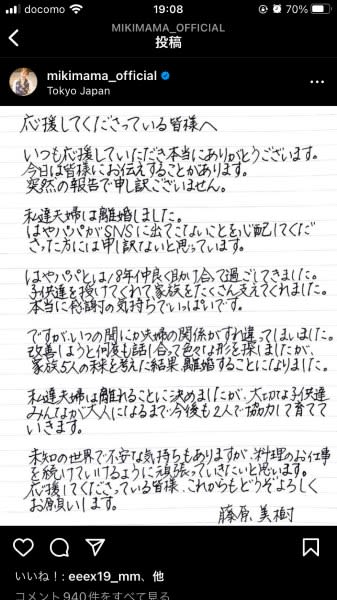 docomo 19:08 70%
MIKIMAMA_OFFICIAL
投稿
mikimama_official
Tokyo Japan
応援してくださっている皆様へ
いつも応援していただき本当にありがとうございます。
今日は皆様にお伝えすることがあります。
突然の報告で申し訳ございません。
私達夫婦は離婚しました。
はやパパがSNSに出てこないことを心配してくだ
さった方には申し訳ないと思っています。
はやパパとは18年仲良く助け合って過ごしてきました。
子供達を授けてくれて家族をたくさん支えてくれました。
本当に感謝の気持ちでいっぱいです。
ですが、いつの間にか夫婦の関係がすれ違ってしまいました。
改善しようと何度も話し合って色々な形を探しましたが、
家族5人の未来を考えた結果、離婚することになりました。
私達夫婦は離れることに決めましたが、大切な子供達
みんなが大人になるまで今後も2人で協力して育てて
いきます。
未知の世界で不安な気持ちもありますが、料理のお仕事
を続けていけるように頑張っていきたいと思います。
応援してくださっている皆様、これからもどうぞよろしく
お願いします。
藤原美樹
いいね！: eeex19_mm、他
コメント940件をすべて見る